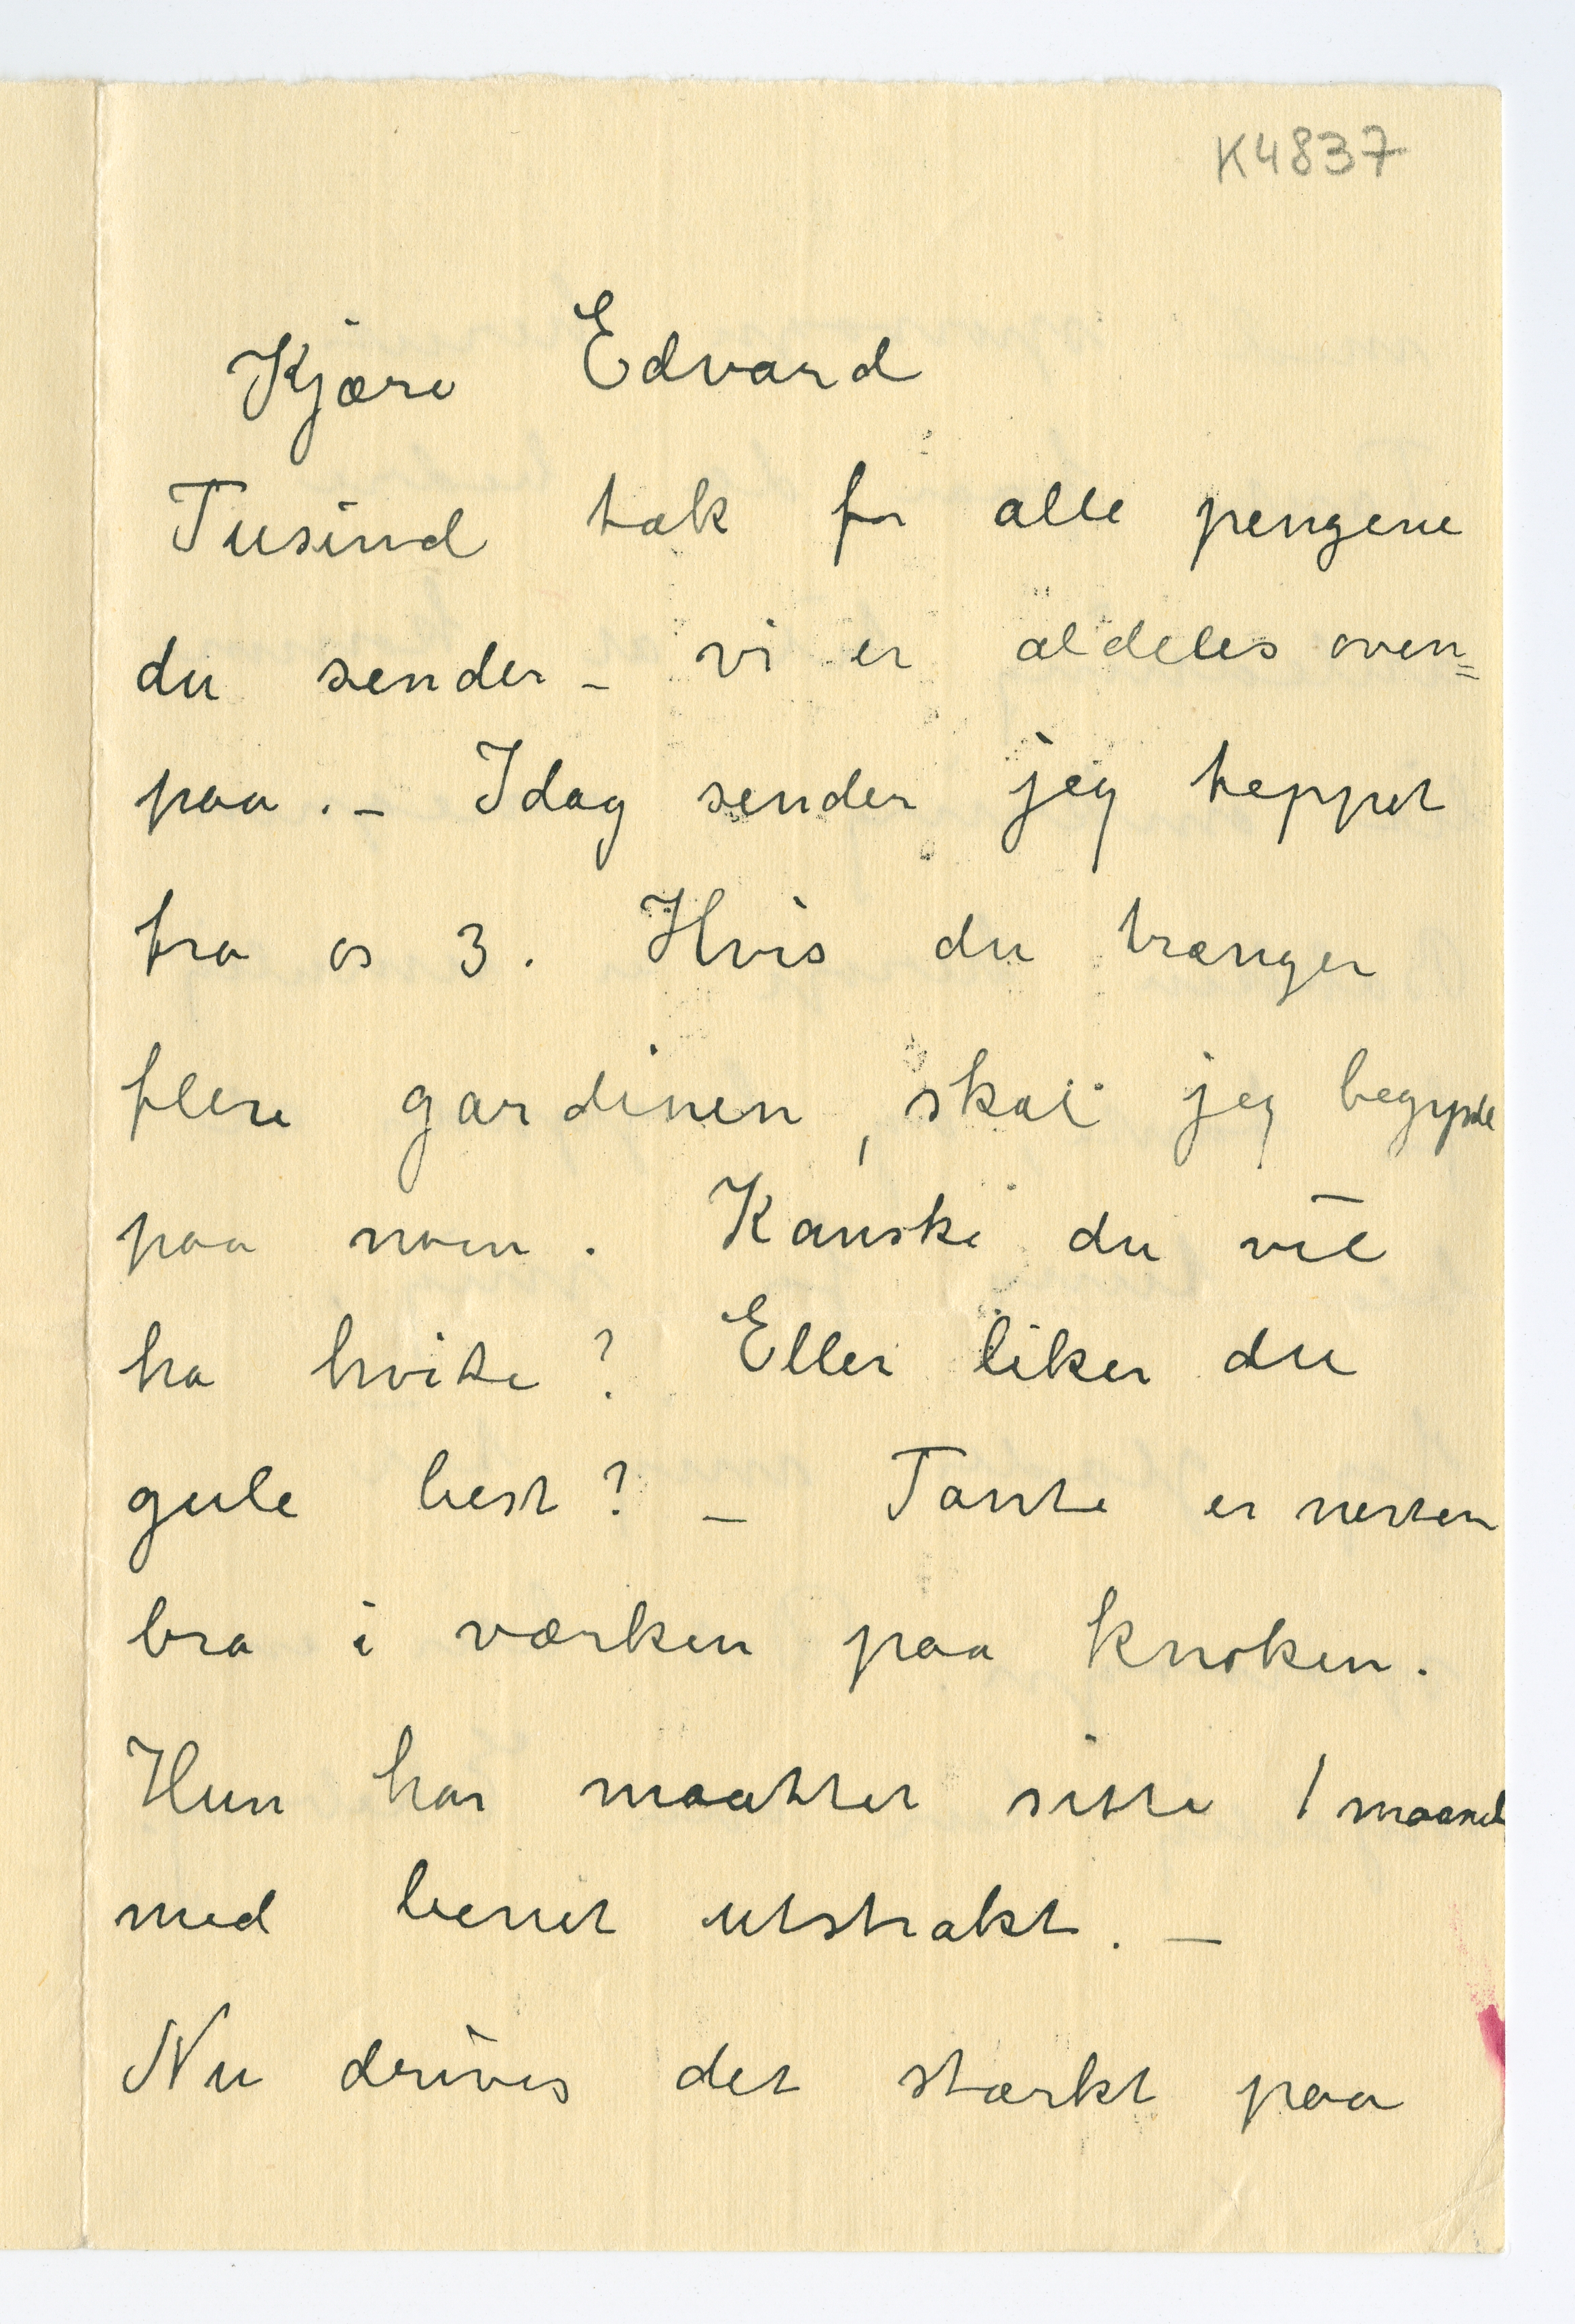 K4837
Kjære Edvard
Tusind tak for alle pengene
du sender – vi er aldeles oven=
paa. – Idag sender jeg teppet
fra os 3. Hvis du trænger
flere gardiner, skal jeg begynde
paa noen. Kanske du vil
ha hvite? Eller liker du
gule best? – Tante er nesten
bra i værken paa knoken.
Hun har maattet sitte 1 maaned
med benet utstrakt. –
Nu drives det stærkt paa